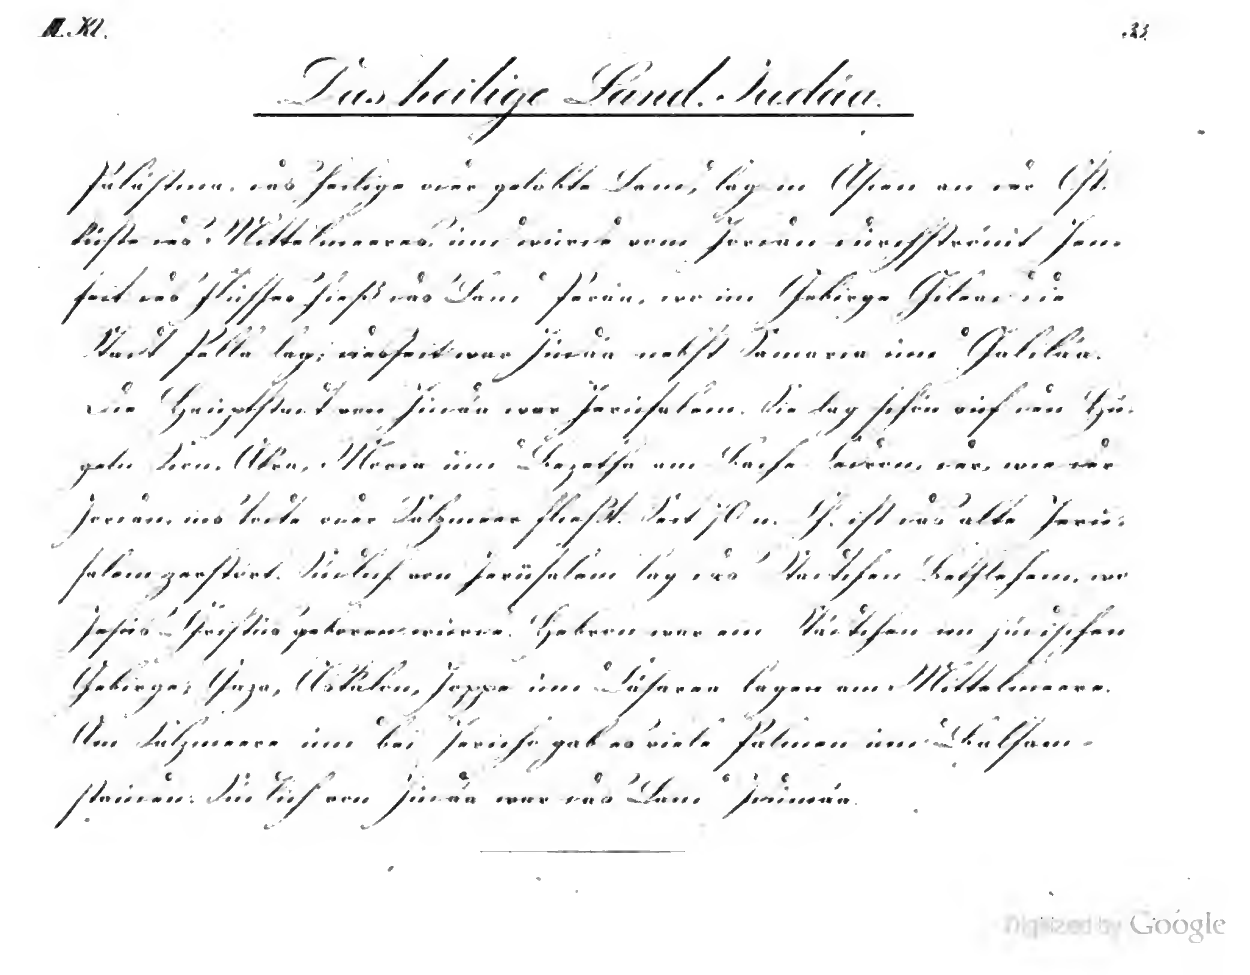 II. Kl. 33.
Das heilige Land. Judäa.
Palästina, das heilige oder gelobte Land, lag in Asien an der Ost-
küste des Mittelmeeres und wurde vom Jordan durchströmt. Jen-
seit des Flusses hieß das Land Peräa, wo im Gebirge Gilead die
Stadt Pella lag; diesseit war Judäa nebst Samaria und Galiläa.
Die Hauptstadt von Judäa war Jerusalem. Sie lag schön auf den Hü-
geln Zion, Akra, Moria und Bezetha am Bache Kidron, der, wie der
Jordan, ins todte oder Salzmeer fließt. Seit 70 n. Ch. ist das alte Jeru-
salem zerstört. Südlich von Jerusalem lag das Städtchen Bethlehem, wo
Jesus Christus geboren wurde. Hebron war ein Städtchen im jüdischen
Gebirge; Gaza, Askalon, Joppe und Cäsarea lagen am Mittelmeere.
Am Salzmeere und bei Jericho gab es viele Palmen und Balsam-
stauden. Südlich von Judäa war das Land Idumäa.
Digitized by Google